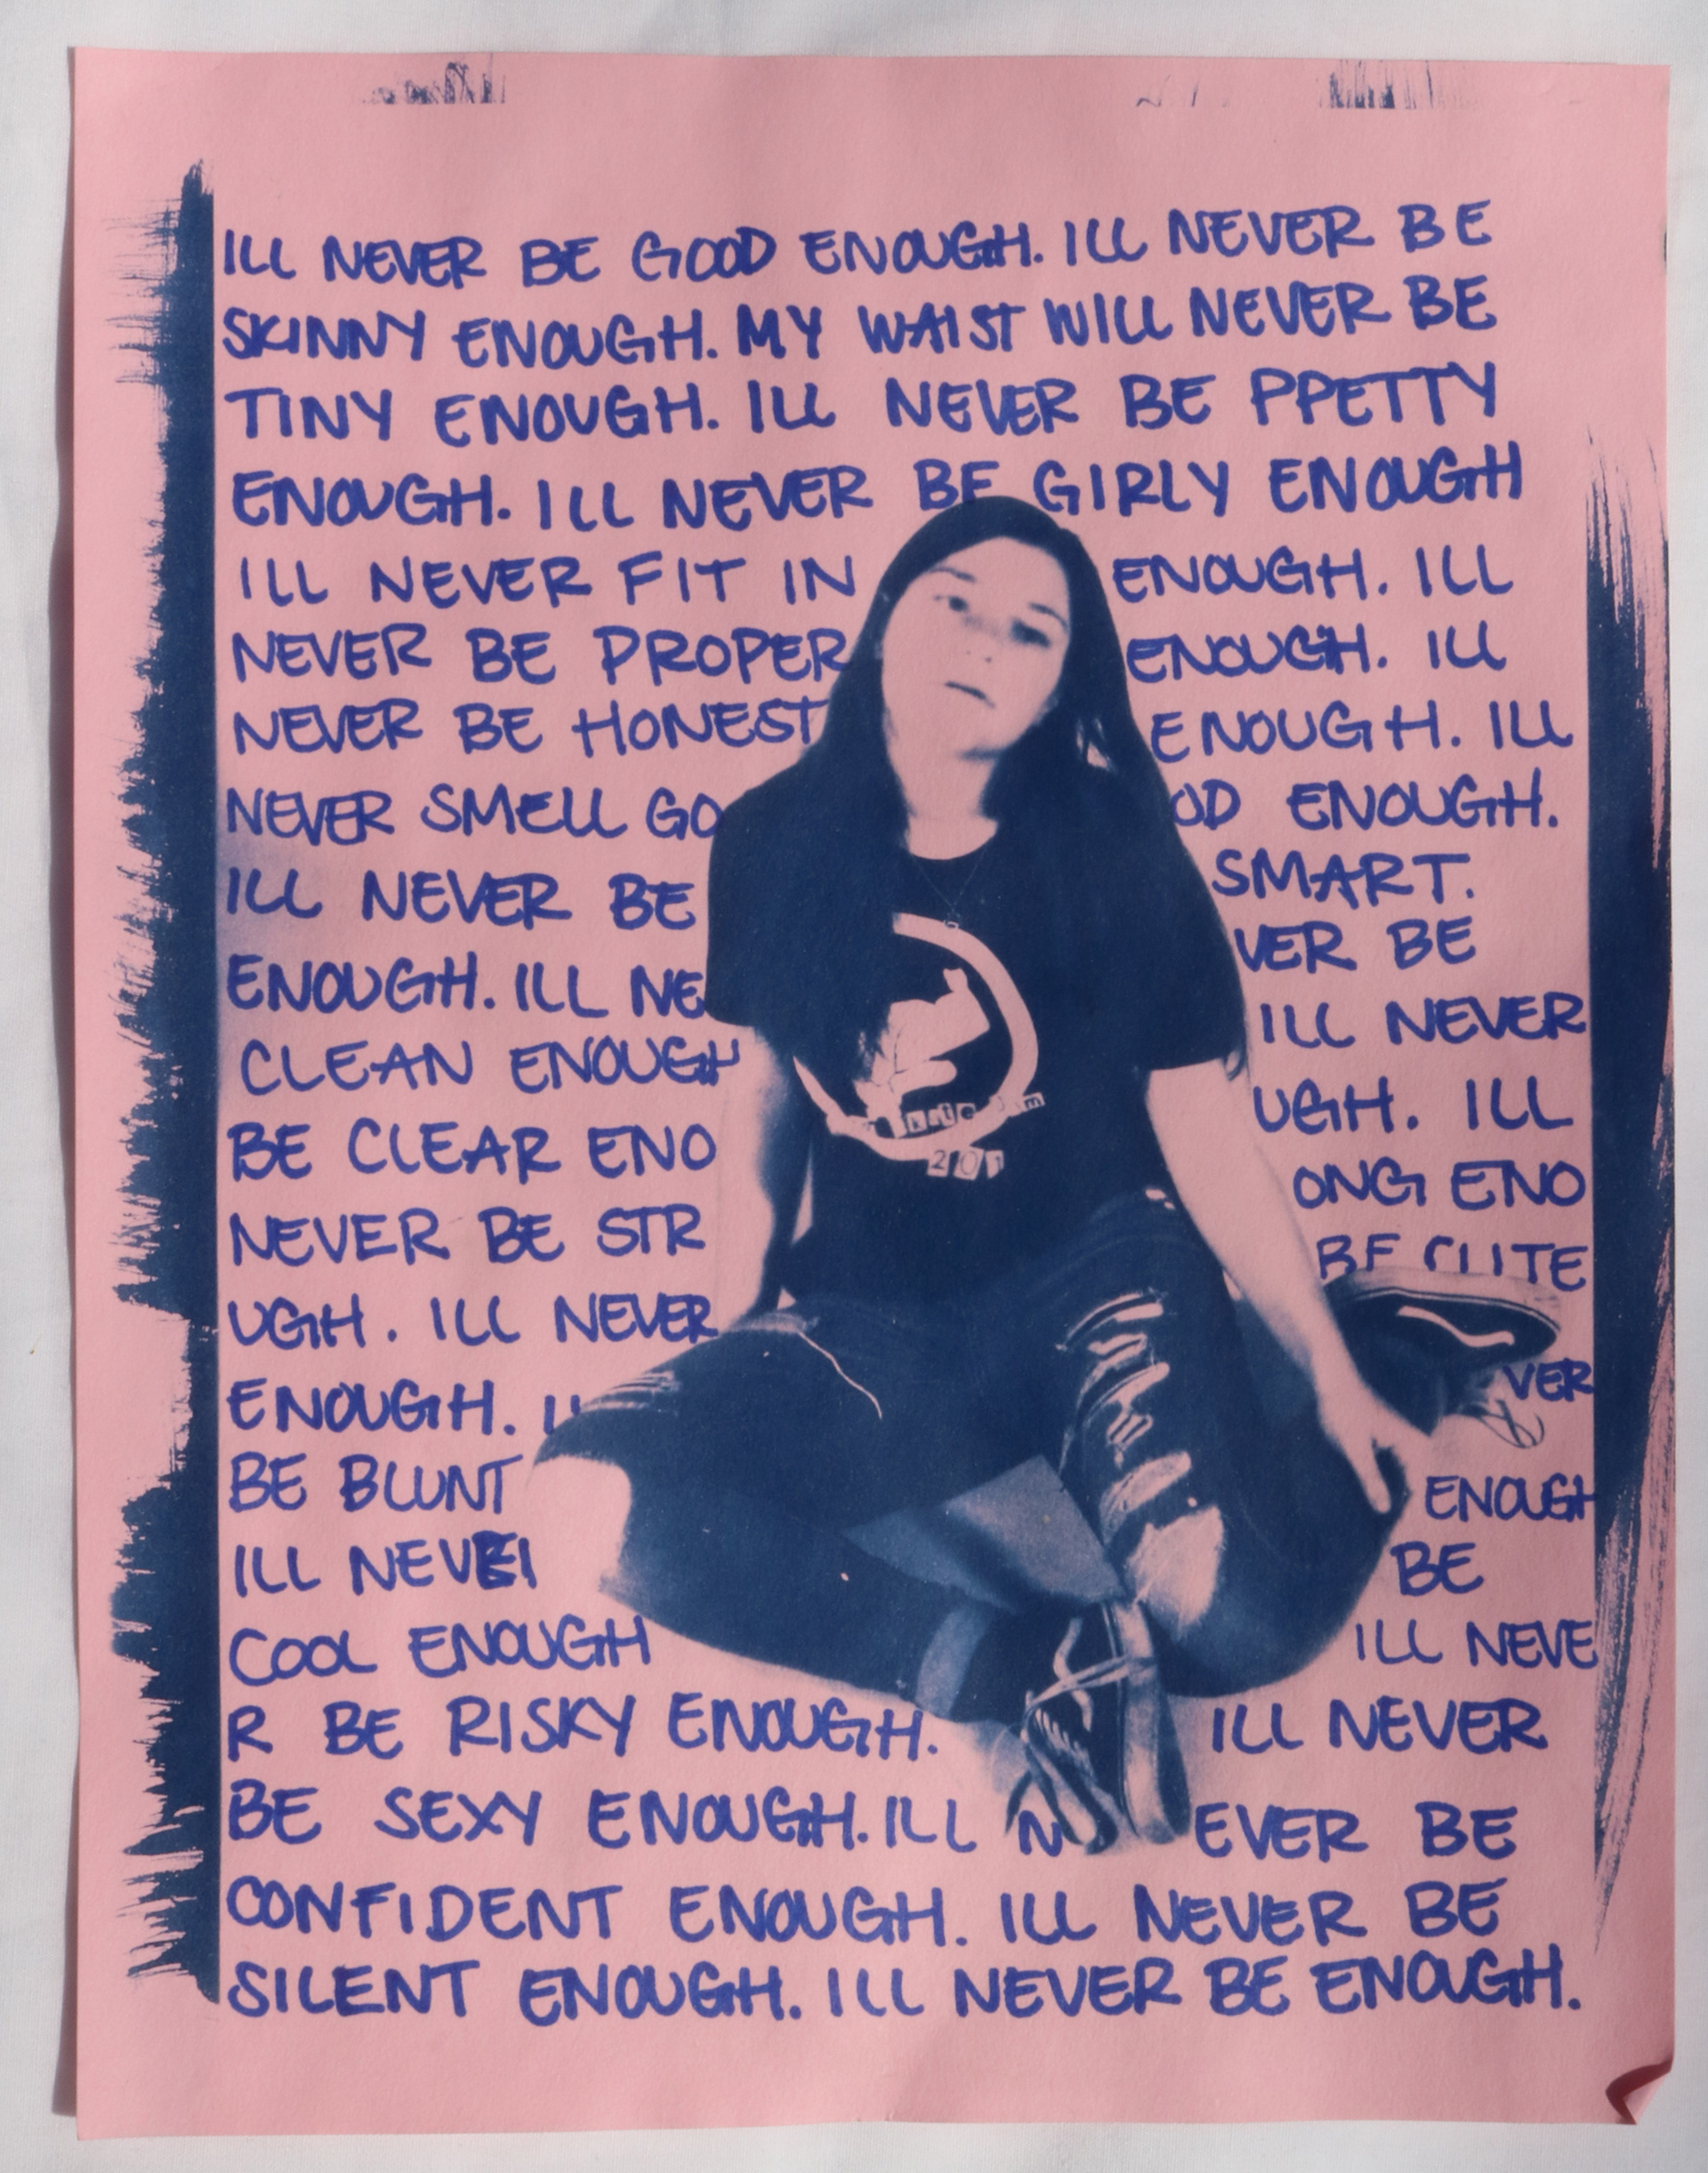 ILL NEVER BE GOOD ENOUGH. ILL NEVER BE
SKINNY ENOUGH. MY WAIST WILL NEVER BE
TINY ENOUGH. ILL NEVER BE PPETTY
ENOUGH. ILL NEVER BE GIRLY ENOUGH
ILL NEVER FIT IN ENOUGH. ILL
NEVER BE PROPER ENOUGH. ILL
NEVER BE HONEST ENOUGH. ILL
NEVER SMELL GO OD ENOUGH.
ILL NEVER BE SMART.
ENOUGH. ILL NE VER BE
CLEAN ENOUGH ILL NEVER
BE CLEAR ENO UGH. ILL
NEVER BE STR ONG ENO
UGH. ILL NEVER BE CUTE
ENOUGH. VER
BE BLUNT ENOUGH
ILL NEVE BE
COOL ENOUGH ILL NEVE
R BE RISKY ENOUGH. ILL NEVER
BE SEXY ENOUGH. ILL N EVER BE
CONFIDENT ENOUGH. ILL NEVER BE
SILENT ENOUGH. ILL NEVER BE ENOUGH.
201